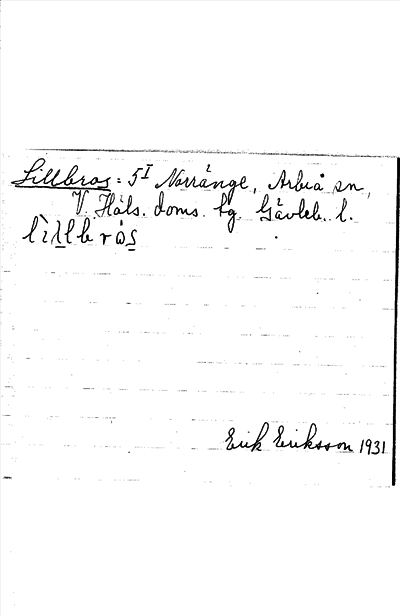 Lillbros = 5I Norränge, Arbrå sn,
V. Häls. doms. tg. Gävleb. l.
lìllbròs
Erik Eriksson 1931